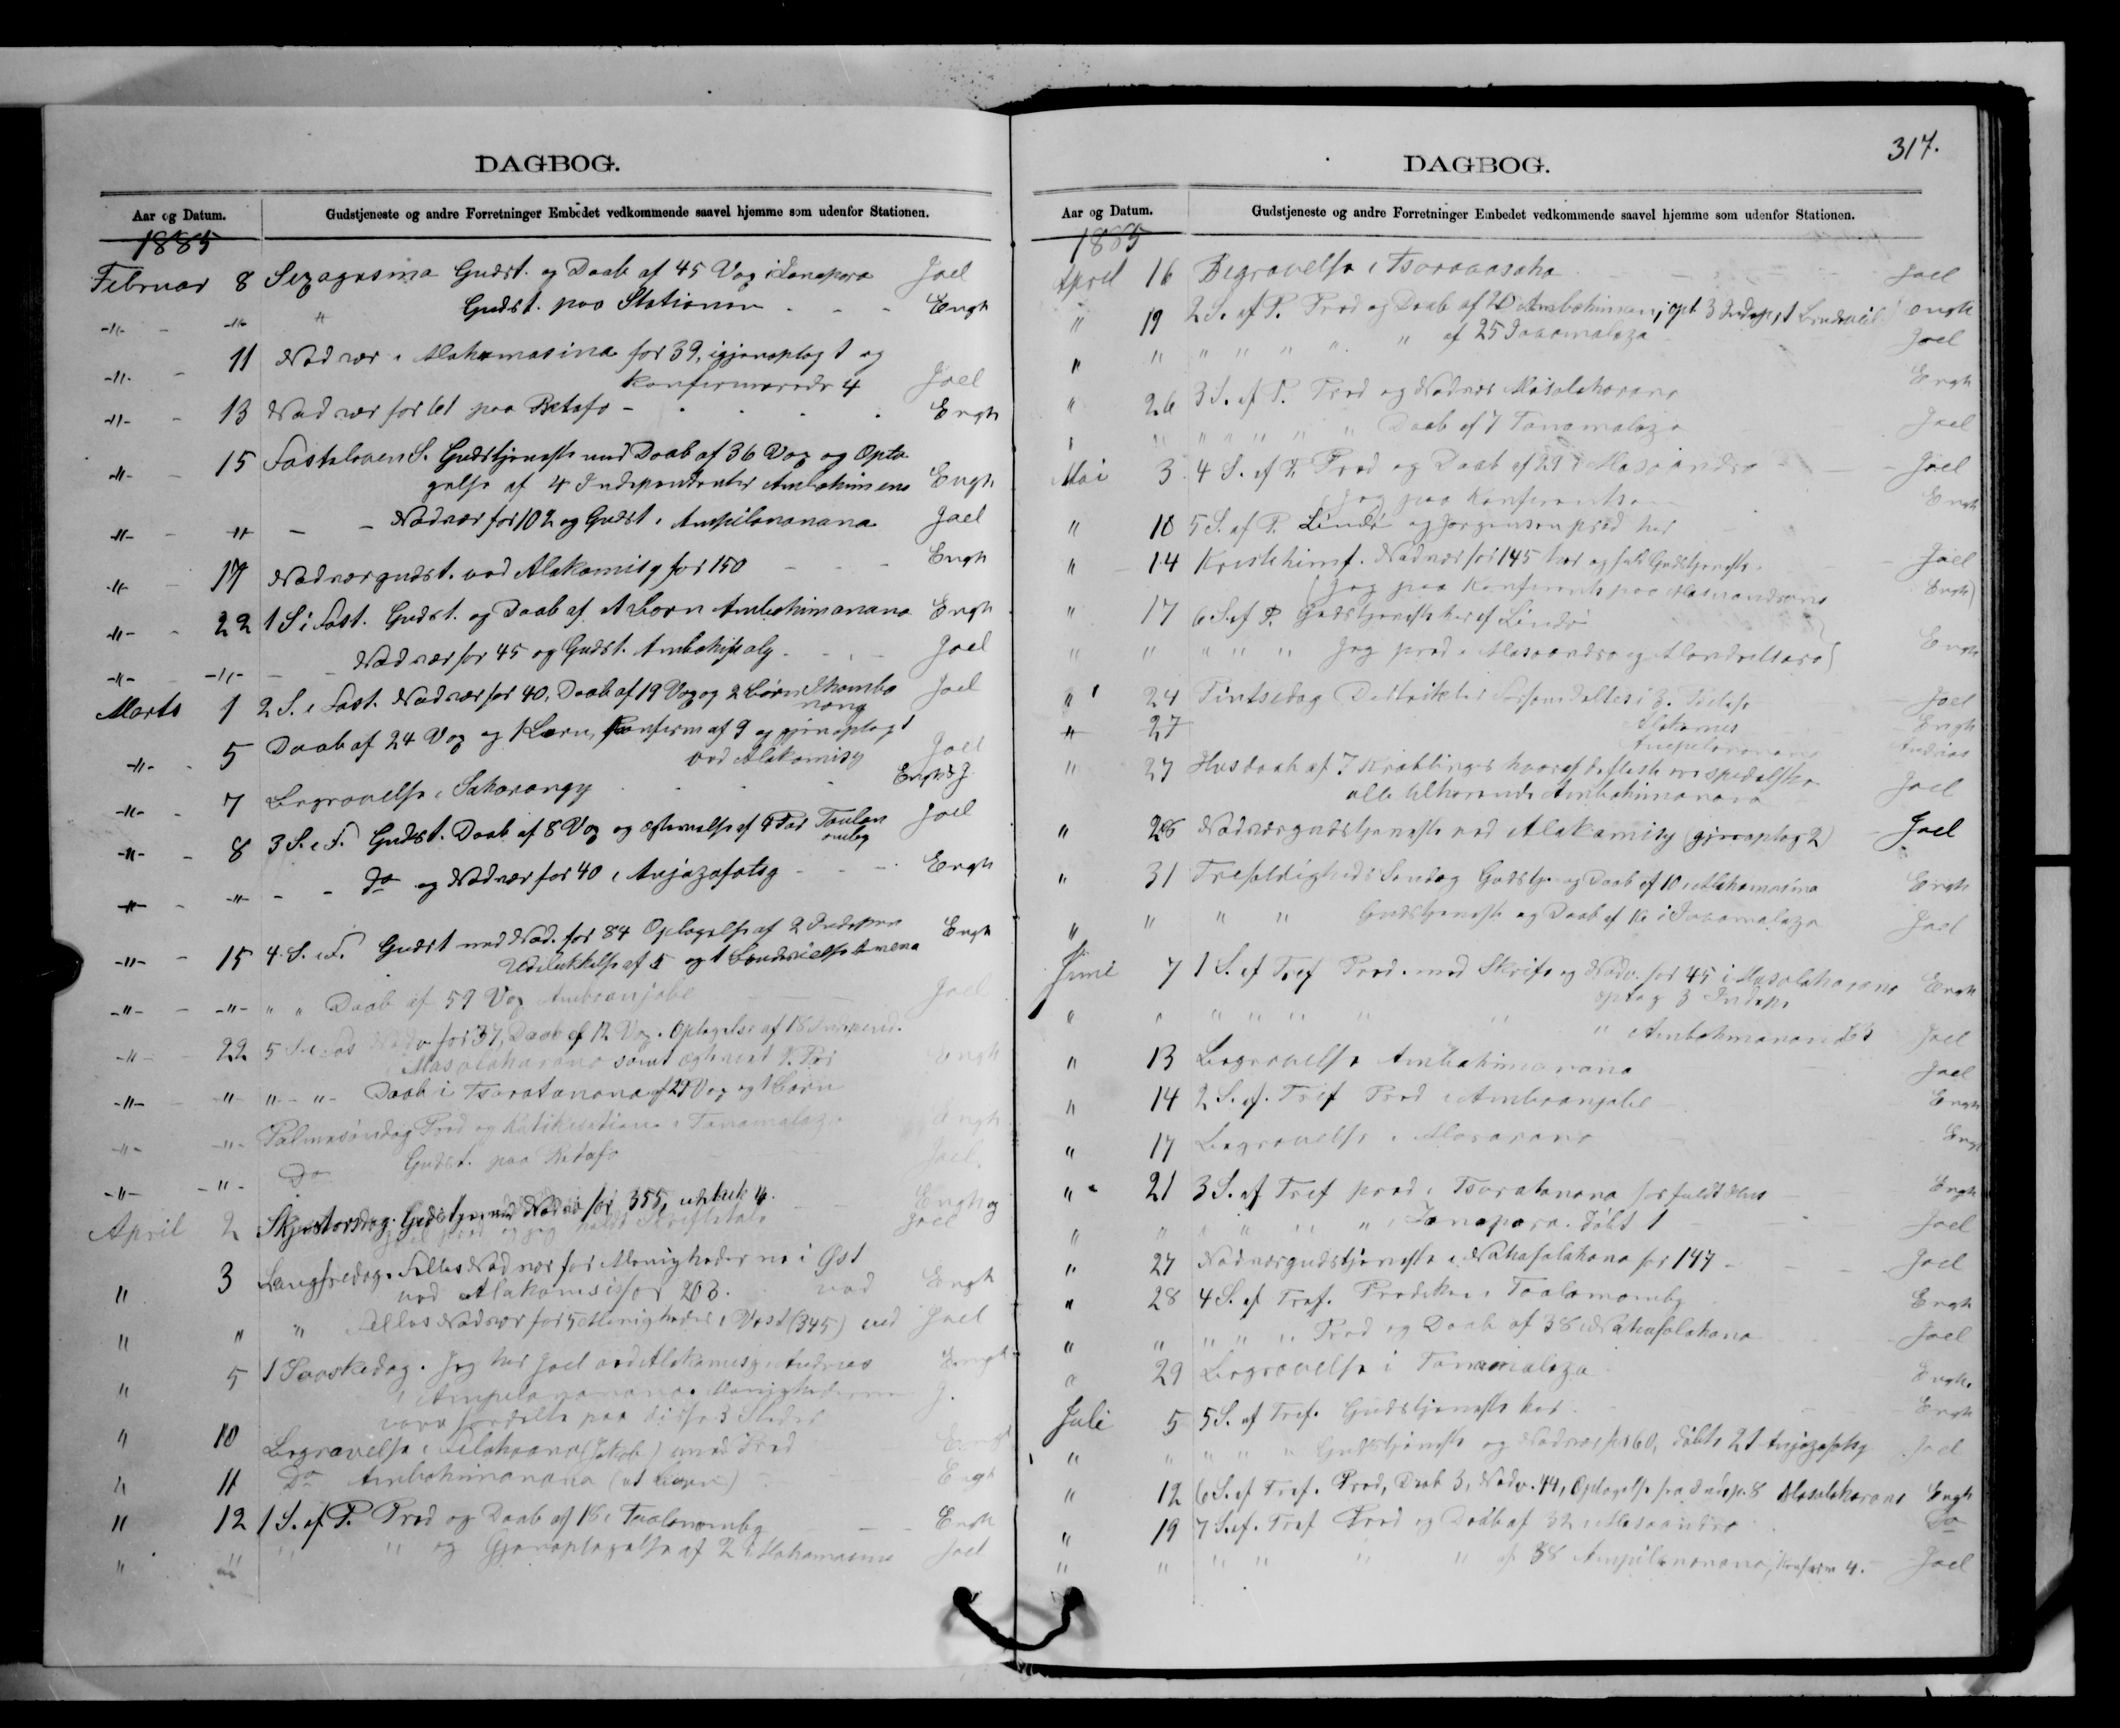 DAGBOG.
Aar og Datum. Gudstjeneste og andre Forretninger Embedet vedkommende saavel hjemme som udenfor Stationen.
1885
Februar 8 Sexagesima Gudst. og Daab af 45 Vox i Joel
-"- -"- " Gudst. paa Stationen - - - Engh
-"- - 11 Nadver i Alahamasina for 39, igjenoptog 1 og
Konfirmerede 4 Joel
-"- - 13 Nadver for 61 paa Betafo - Engh
-"- - 15 Fastelaven S. Gudstjeneste med Daab af 36 Vox og Opta
gelse af 4 Independenter Ambohimena Engh
-"- -"- - - Nadver for 102 og Gudst. i Ampilanonana Joel
-"- - 17 Nadvergudst. ved Alakamisy for 150 - - - Engh
-"- - 22 1 S i Fast. Gudst. og Daab af Børn Ambohimanana Engh
-"- -"- - - Nadver for 45 og Gudst. Joel
Marts 1 2 S. i Fast. Nadver for 40, Daab af 19 Vox og 2 Børn Joel
-"- - 5 Daab af 24 Vox og 1 Barn, Konfirm af 9 og gjenoptog 1
ved Alakamisy Joel
-"- - 7 Begravelse i Engh & J.
-"- - 8 3 S. i F. Gudst. Daab af 8 Vox og af Par Joel
-"- - -"- - - Do og Nadver for 40 i Anjazafotsy - - - Engh
-"- - 15 4. S. i F. Gudst med Nad. for 84 Optagelse af 2 Indepen
Udelukkelse af 5 og 1 Engh
-"- -"- " " Daab af 59 Vox Amboanjobe Joel
-"- 22 5 S. i Nadv for 37, Daab af 12 Vox. Optagelse af 18 Independ.
Masolaharano samt Par Engh
-"- -"- "-"- Daab i Tsaratanana af 29 Vox og 1 Barn
-"- -"- Palmesøndag Præd og Katikisation i Tanamalaza Engh
-"- -"- Do Gudst. paa Betafo Joel.
April 2 Skjærtorsdag. Gudstj med Nadver for 355, udeluk 4. Engh og
Joel præd og jeg holdt Skriftetale Joel
" 3 Langfredag. Fælles Nadver for Menighederne i Øst
ved Alakamisi for 203. Engh
" " " Fælles Nadver for 5 Menigheder i Vest (345) ved Joel
" 5 1 Paaskedag. Jeg her Joel ved Alakamisy, Andreas Engh
i Ampilanonana. Menighederne J.
vare fordelte paa disse 3 Steder
" 10 Begravelse i (Jakob) med Præd Engh
" 11 Do Ambohimanana (et Barn) - Engh
" 12 1 S. ef P. Præd og Daab af 18 i Taolanomby - - Engh
" " " " og Gjenoptagelse af 2 i Alahamasina Joel
317.
DAGBOG.
Aar og Datum. Gudstjeneste og andre Forretninger Embedet vedkommende saavel hjemme som udenfor Stationen.
1885
April 16 Begravelse i Tsaravasaha Joel
" 19 2 S. ef P. Præd og Daab af 20 i opt 3 Indep, 1 Engh
" " " " " " af 25 Joel
" 26 3 S. ef P. Præd og Nadver Masolaharano Engh
" " " " " " " Daab af 7 Tanamalaza Joel
Mai 3 4 S. ef P. Præd og Daab af 29 i Masoandro - Joel
(Jeg paa Konferentsen Engh
" 10 5 S. af P. Lindø og Jørgensen præd her
" 14 Kristi himf. Nadver for 145 her og fuld Gudstjeneste. - Joel
(Jeg paa Konferents paa Masinandraina Engh)
" 17 6 S. ef P. Gudstjeneste her af Lindø
" " " " " Jeg præd i Masoandro og Engh
" 24 Pintsedag Distriktets Forsamledes i 3. Betafo Joel
" 27 Alakamis - Engh
Ampilanonana Andreas
" 27 Husdaab af 7 Krøblinger hvoraf de fleste ere spedalske
alle tilhørende Ambohimanana Joel
" 28 Nadvergudstjeneste ved Alakamisy (gjenoptog 2) Joel
" 31 Trefoldigheds Søndag Gudstje og Daab af 10 i Alahamasina Engh
" " " " Gudstjeneste og Daab af 12 i Joel
Juni 7 1 S. ef Tref Præd. med Skrifte og Nadv. for 45 i Masolaharano Engh
optog 3 Indep.
" " " " " " " " i Ambohimanana Joel
" 13 Begravelse Ambohimanana Joel
" 14 2 S. ef. Tref Præd i Amboanjobe Engh
" 17 Begravelse i Engh
" 21 3 S. ef Tref præd i Tsaratanana for fuldt Hus - Engh
" " " " " " i døbt 1 - Joel
" 27 Nadvergudstjeneste i Nahafalahana for 147 - Joel
" 28 4 S. ef Tref. Prædiken i Taolanomby Engh
" " " " " Præd og Daab af 38 i Nahafalahana Joel
" 29 Begravelse i Tanamalaza Engh.
Juli 5 5 S. ef Tref. Gudstjeneste her Engh
" " " " " Gudstjeneste og Nadver for 60, døbte 21 Anjazafotsy Joel
" 12 6 S. ef Tref. Præd, Daab 3, Nadv. 44, Optagelse fra Indep. 8 Masolaharano Engh
" 19 7 S. ef. Tref Præd og Daab af 32 i Masoandro Do
" " " " " " af 38 Ampilanonana, Konfirm 4. - Joel